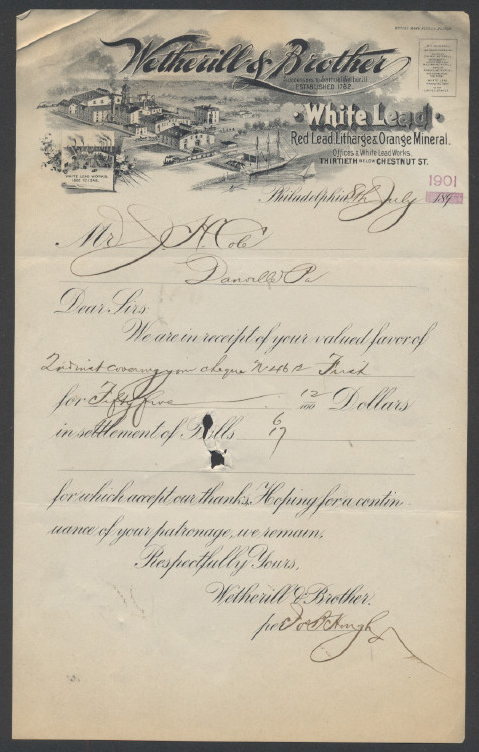 Wetherill & Brother
Successors to Samuel Wetherill
ESTABLISHED 1762.
White Lead
Red Lead, Litharge & Orange Mineral.
Offices & White Lead Works
THIRTIETH BELOW CHESTNUT ST.
WHITE LEAD WORKS
1901
Philadelphia, 8th July 189
Mr J. H Cole
Danville Pa
Dear Sirs
We are in receipt of your valued favor of
2nd inst covering your cheque No 4612
for Fifty five 12/100 Dollars
in settlement of Bills 6
17
for which accept our thanks. Hoping for a contin-
uance of your patronage, we remain,
Respectfully Yours,
Wetherill & Brother.
per